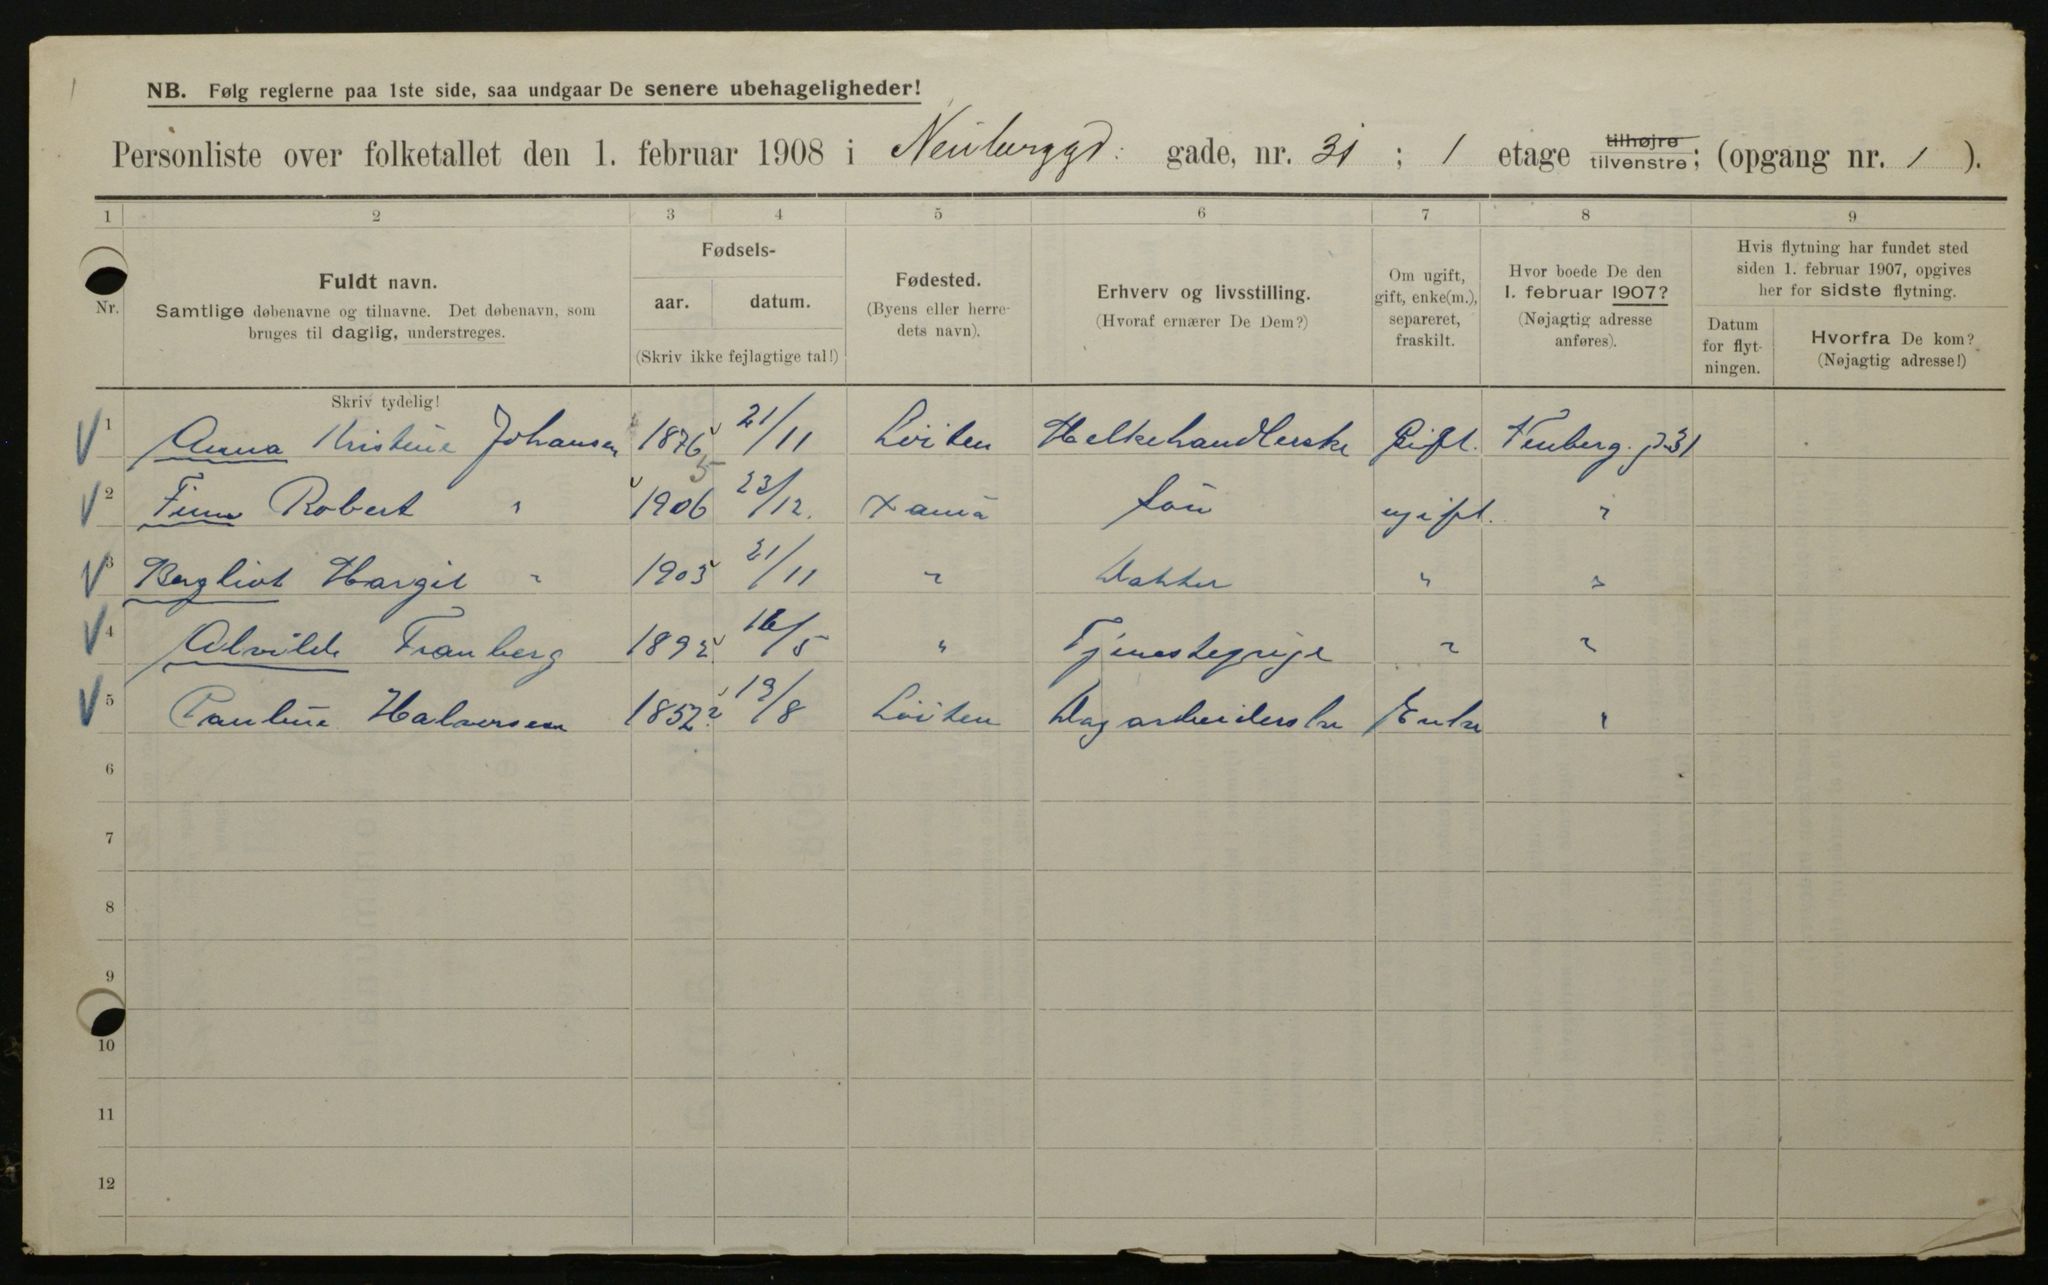 NB. Følg reglerne paa 1ste side, saa undgaar De senere ubehageligheder!
Personliste over folketallet den 1. februar 1908 i Neuberggd: gade, nr. 31 ; 1 etage tilhøjre tilvenstre; (opgang nr. 1 ).
1 2 3 4 5 6 7 8 9
Nr.
Fuldt navn.
Samtlige døbenavne og tilnavne. Det døbenavn, som
bruges til daglig, understreges.
Fødsels-
aar. datum.
(Skriv ikke fejlagtige tal!)
Fødested.
(Byens eller herre-
dets navn).
Erhverv og livsstilling.
(Hvoraf ernærer De Dem?)
Om ugift,
gift, enke(m.),
separeret,
fraskilt.
Hvor boede De den
1. februar 1907?
(Nøjagtig adresse
anføres).
Hvis flytning har fundet sted
siden 1. februar 1907, opgives
her for sidste flytning.
Datum
for flyt-
ningen.
Hvorfra De kom?
(Nøjagtig adresse!)
Skriv tydelig!
1 Anna Kristine Johansen 1876 21/11 Löiten Melkehandlerske Gift. Neuberg. g 31
2 Finn Robert " 1906 5 23/12. X ania Sön ugift. "
3 Bergliot Margit " 1903 21/11 " Datter " "
4 Alvilde Framberg 1892 16/5 " Tjenestepige " "
5 Pauline Halvorsen 1852 19/8 Löiten Dagarbeiderske Enke "
6
7
8
9
10
11
12